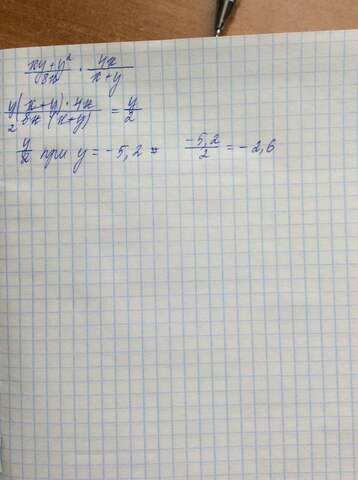 (xy+y²)/8x · 4x/(x+y)
y(x+y)·4x / 2 8x (x+y) = y/2
y/2 при y = -5,2 = -5,2/2 = -2,6